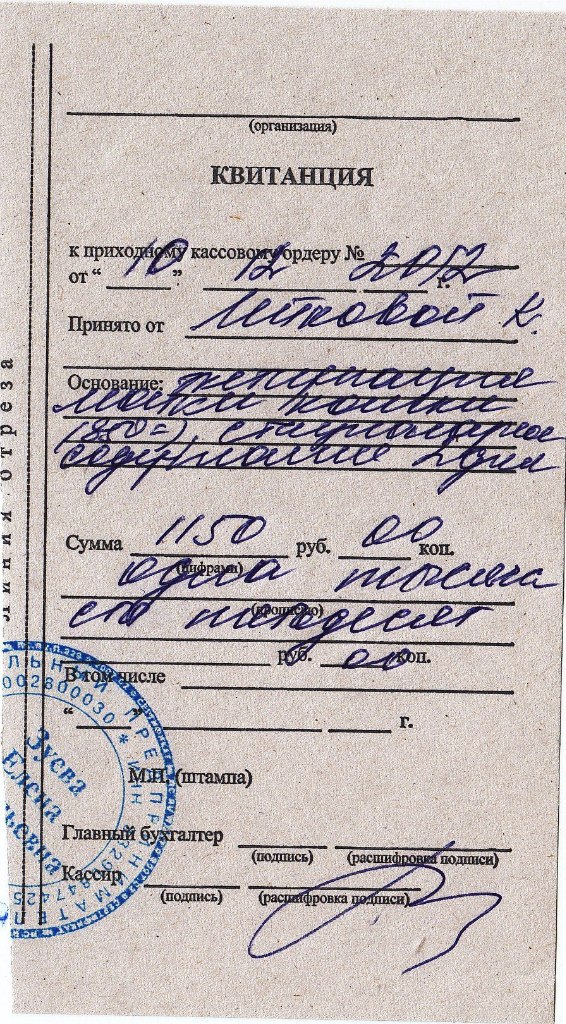 (организация)
КВИТАНЦИЯ
к приходному кассовому ордеру №
от “ 10 ” 12 2012 г.
Принято от К.
Основание:
матки кошки
стационарное
содержание 2 дня
Сумма 1150 руб. 00 коп.
(цифрами)
одна тысяча
(прописью)
сто пятьдесят
руб. 00 коп.
В том числе
“ ” г.
М.П. (штампа)
Главный бухгалтер
(подпись) (расшифровка подписи)
Кассир
(подпись) (расшифровка подписи)
линия отреза
002800030 * ИНН
Зуева
Елена